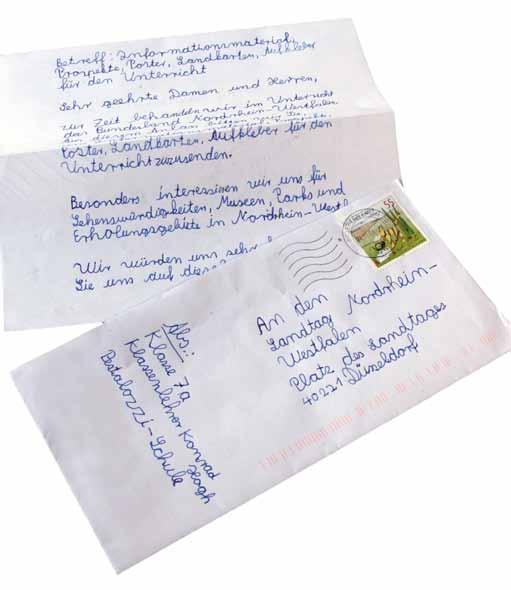 Betreff: Informationsmaterial,
Prospekte, Poster, Landkarten, Aufkleber
für den Unterricht
Sehr geehrte Damen und Herren,
zur Zeit behandeln wir im Unterricht
das Bundesland Nordrhein-Westfalen.
Poster, Landkarten, Aufkleber für den
Unterricht zuzusenden.
Besonders interessieren wir uns für
Sehenswürdigkeiten, Museen, Parks und
Erholungsgebiete in Nordrhein-Westf
Wir würden uns sehr
Sie uns auf diese
55
An den
Landtag Nordrhein-
Westfalen
Platz des Landtages
40221 Düsseldorf
Abs.:
Klasse 7a
Klassenlehrer Konrad
Hogh
Pestalozzi-Schule